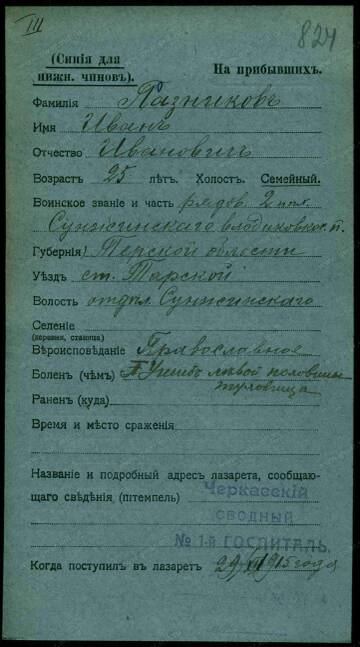 III
824
(Синія для
нижн. чиновъ).
На прибывшихъ.
Фамилія Пазниковъ
Имя Иванъ
Отчество Ивановичъ
Возрастъ 25 лѣтъ. Холостъ. Семейный.
Воинское званіе и часть рядов. 2 пол.
Сунжинскаго владикавкос. п.
Губернія Терской области
Уѣздъ ст. Тарской
Волость отдѣл. Сунжинскаго
Селеніе
(деревня, станица)
Вѣроисповѣданіе Православное
Боленъ (чѣмъ) Ушибъ лѣвой половины
Раненъ (куда)
Время и мѣсто сраженія
Названіе и подробный адресъ лазарета, сообщаю-
щаго свѣдѣнія (штемпель)
Черкасскій
СВОДНЫЙ
№ 1-й ГОСПИТАЛЬ
Когда поступилъ въ лазаретъ 29 1915 года